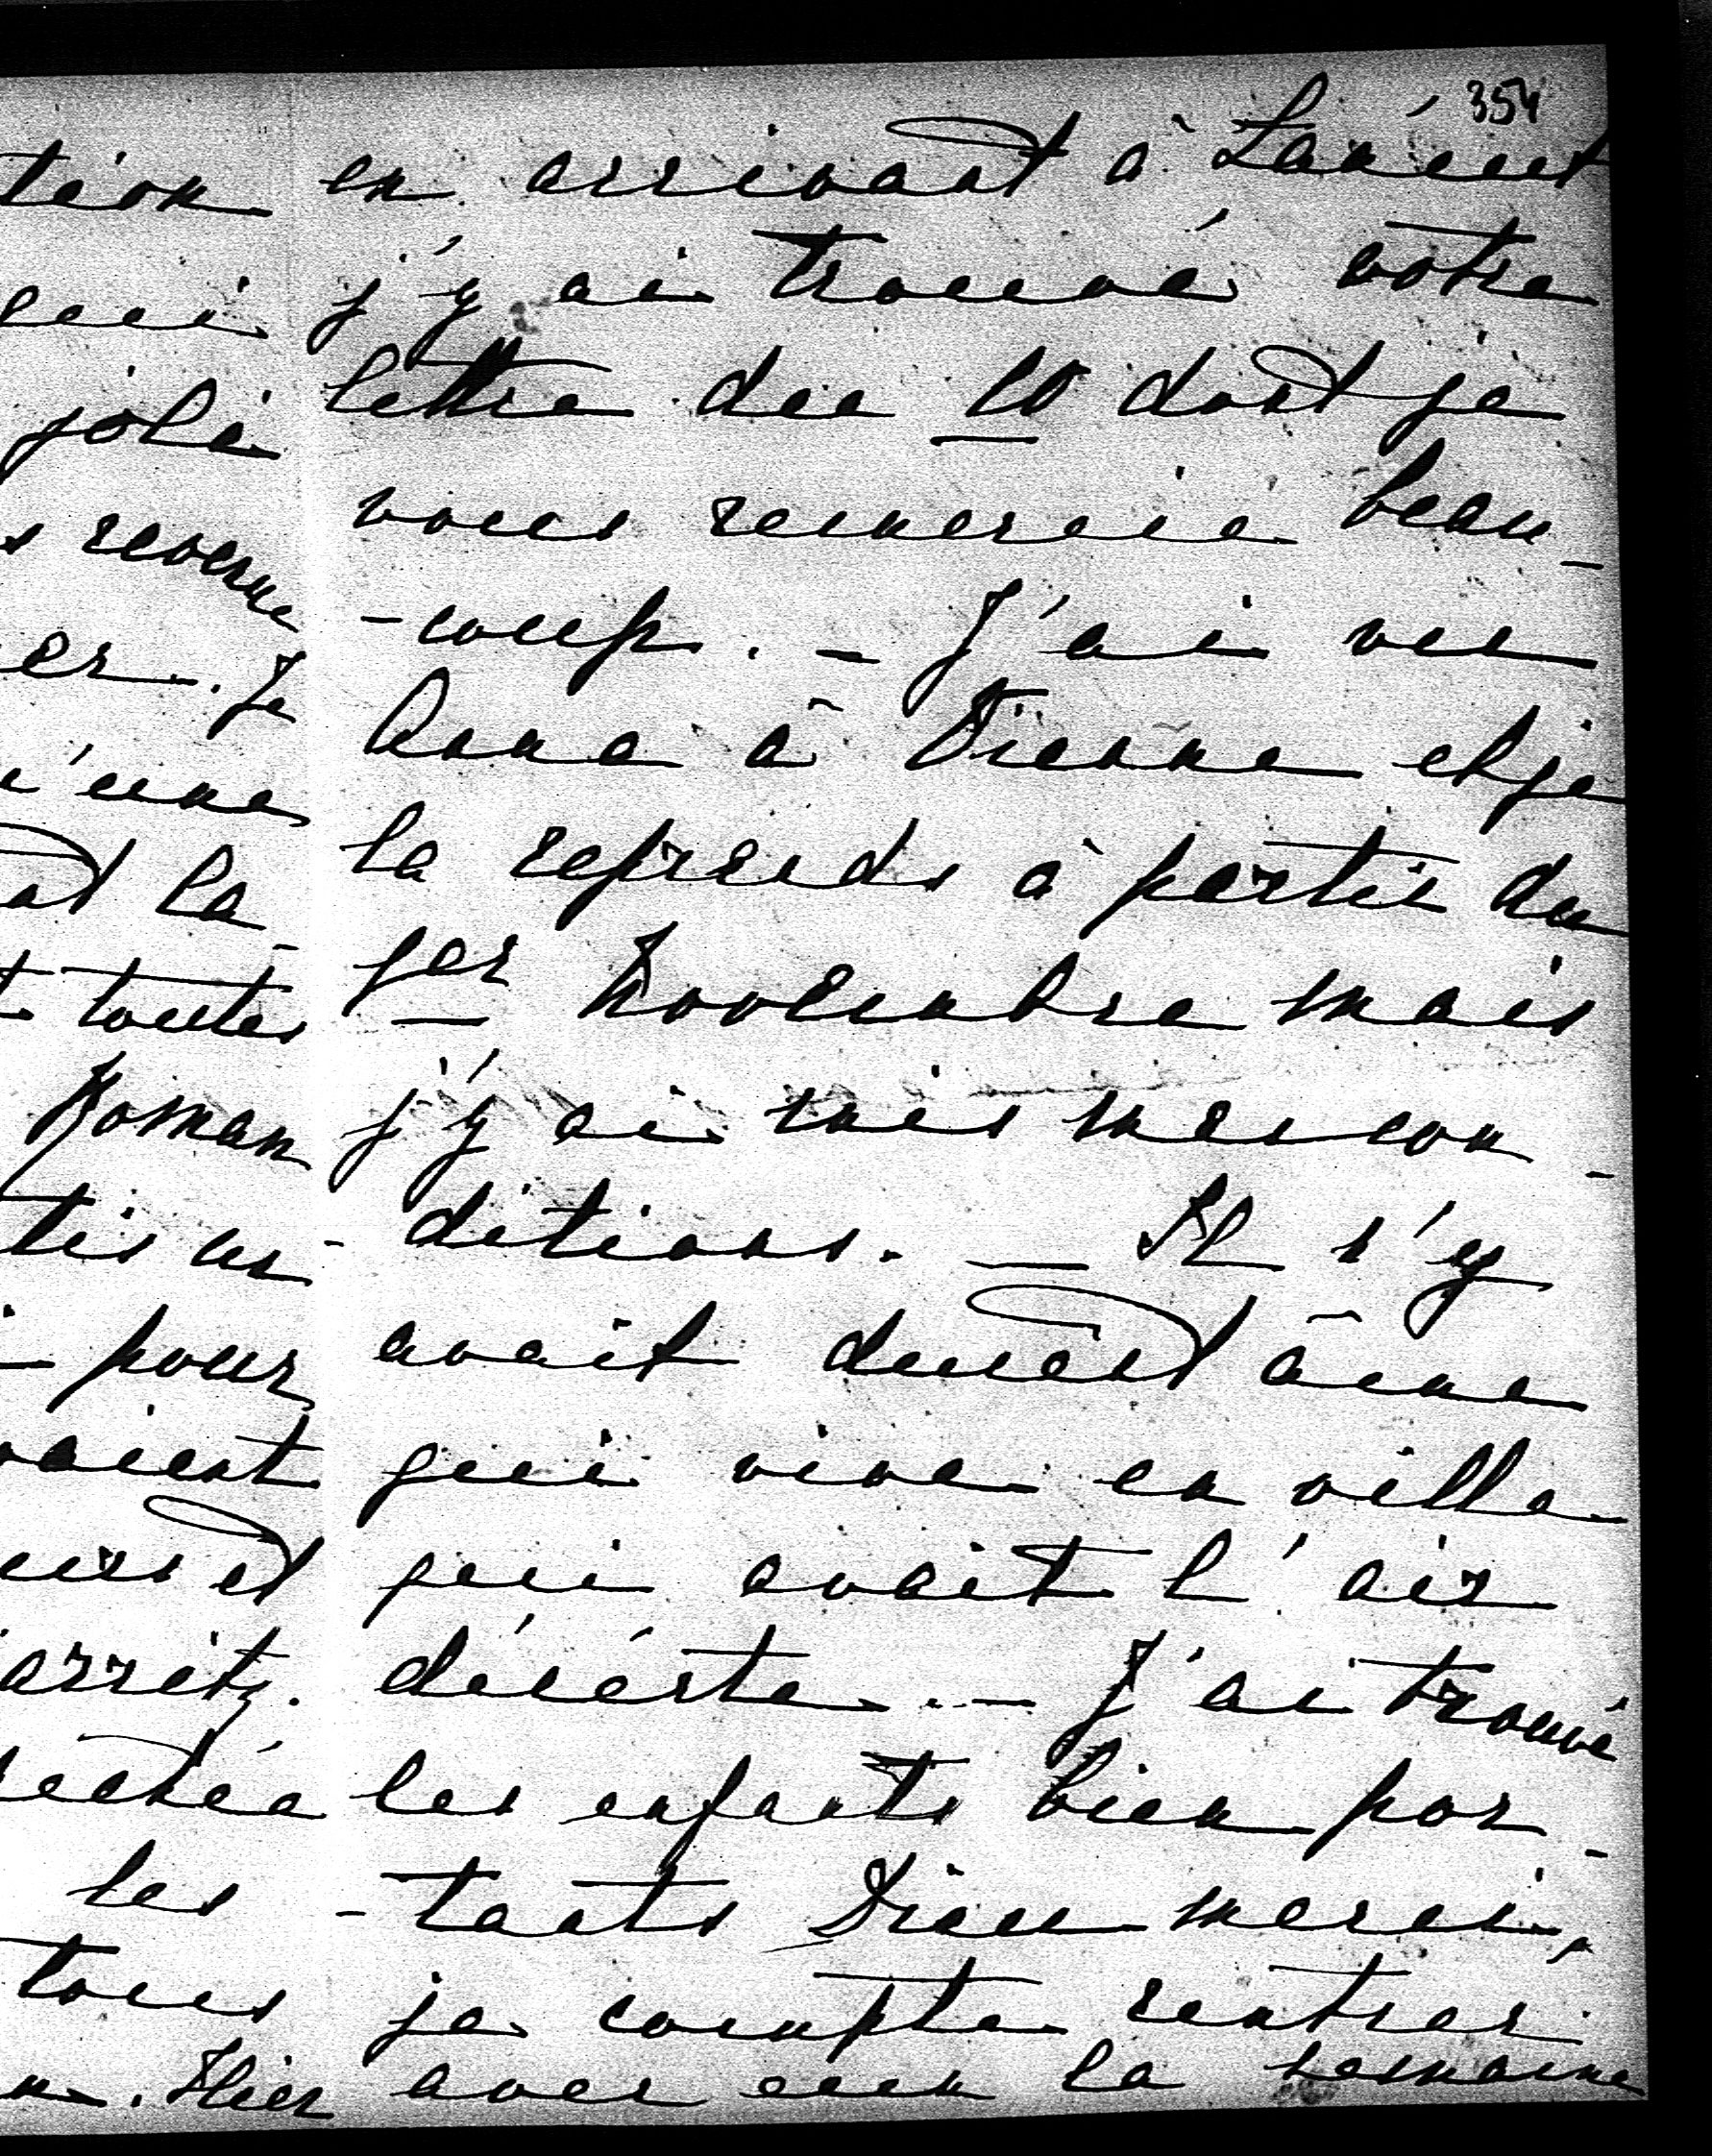 354
en arrivant à Łańcut
j'y ai trouvé votre
lettre du 10 dont je
vous remercie beau-
-coup. - J'ai vu
Anna à Vienne et je
la reprends à partir du
1er Novembre mais
j'y ai mis mes con-
ditions. - Il n'y
avait ducent âme
qui vive en ville
qui avait l'air
déserte. - J'ai trouvé
les enfants bien por-
-tants Dieu merci,
je compte rentrer
avec eux la semaine
tion
qui
joli
s revenue
er. Je
'une
la-
toutes
Roman
tis us-
pour
vaient
et
arritz.
les
tous
Hier